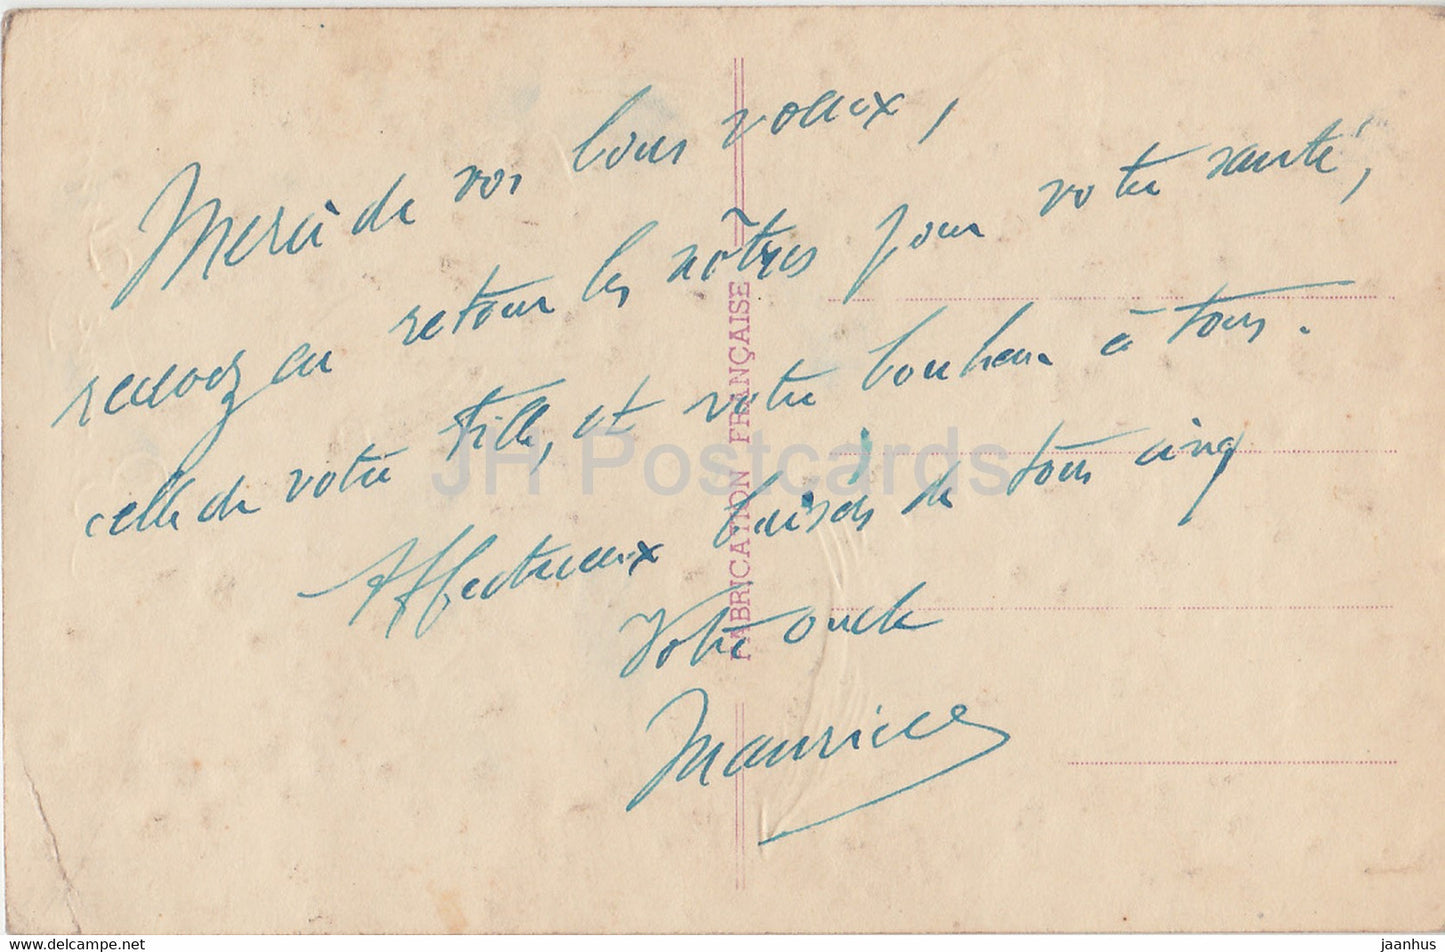 Merci de vos bons voeux,
recevez en retour les nôtres pour votre santé,
celle de votre fille, et votre bonheur à tous.
Affectueux baisers de tous cinq
Votre oncle
Maurice
FABRICATION FRANÇAISE
JH Postcards
www.delcampe.net
jaanhus